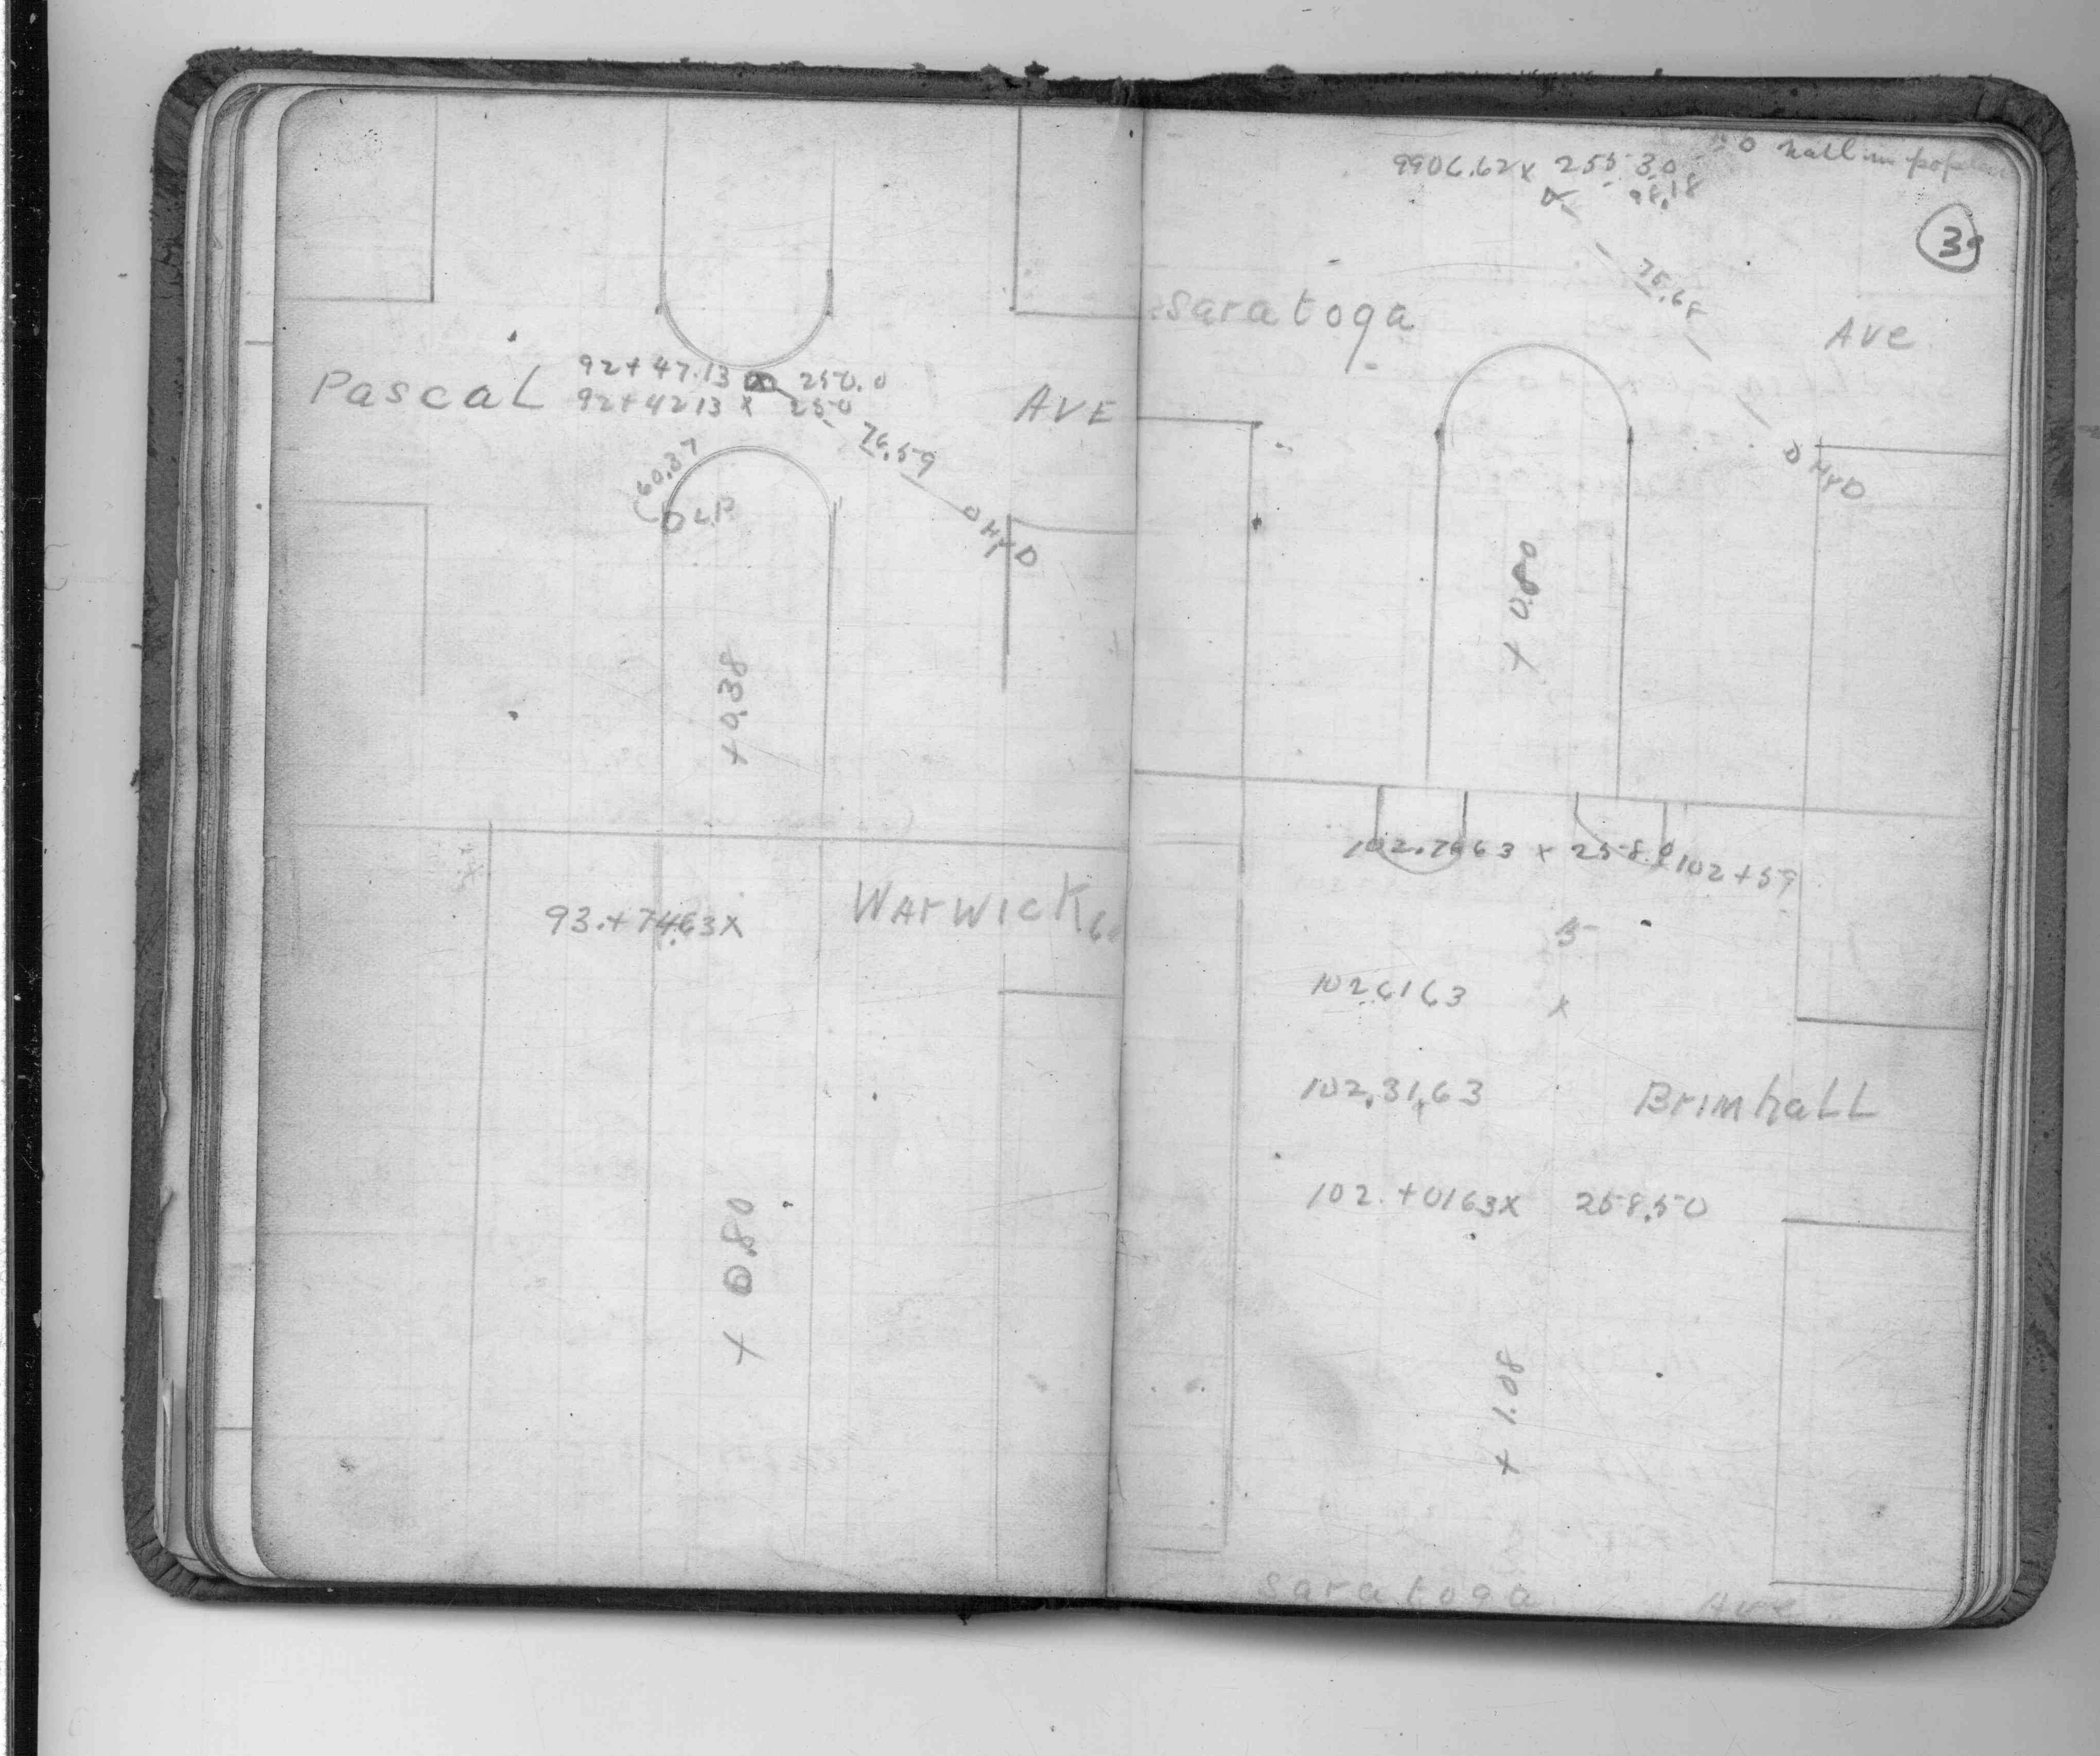 Pascal Ave
92+47.13 250.0
92+4213 x 250
76.59
60.37
L.P.
HYD
+0.38
93.+7463x
Warwick
+ 0.80
39
9906.62x 255.30
98.18
nail in
75.68
Saratoga Ave
HYD
+ 0.80
102.7663 x 258.0
102+59
5
1026163 x
102.31.63
Brimhall
102.+0163x 258.50
+ 1.08
Saratoga Ave